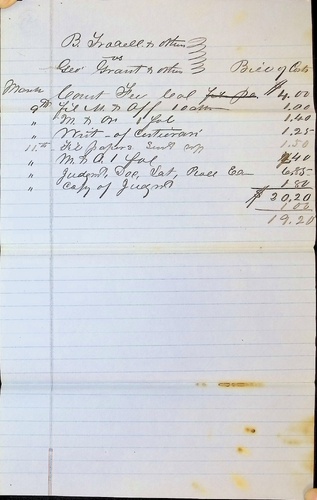 B. Tradell & others
vs
Geo Grant & others Bill of Costs
March Court Fee $4.00
9th fil M. & Aff 1.00
" M. & On 1 fol 1.40
" Writ - of Certiorari 1.25
11th Fil papers 1.50
" M. & O. 1 fol 40
" Judgmt, Doc, Sat, 6.85
" Copy of Judgmt 1.80
$ 20.20
1.00
19.20